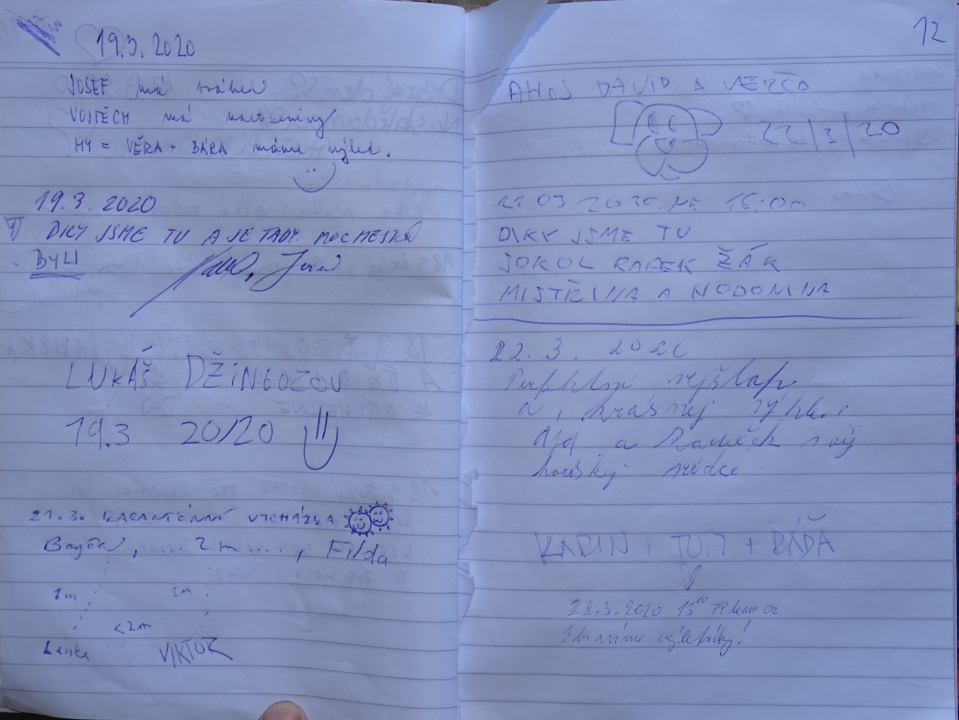 19.3.2020
JOSEF má svátek
VOJTĚCH má narozeniny
MY = VĚRA + BÁRA máme výlet.
19.3.2020
DÍKY JSME TU A JE TADY MOC HESKÝ
BYLI
LUKÁŠ DŽINGOZOV
19.3 20/20
21.3. KARANTÉNNÍ VYCHÁZKA
, .. 2m ...., Filda
2m 2m
<2m
Lenka VIKTOR
12
AHOJ DAVID A VERČA
22/3/20
22.03 2020 16:00
DIKY JSME TU
SOKOL RADEK ŽÁK
MISTŘINA A HODONINA
22.3. 2020
Perfektní výšlap
a, krásnej výhled
a Radeček
srdce
KARIN + TOM + BÁĎA
28.3.2020 15⁰⁰
Zdravíme výletníky!